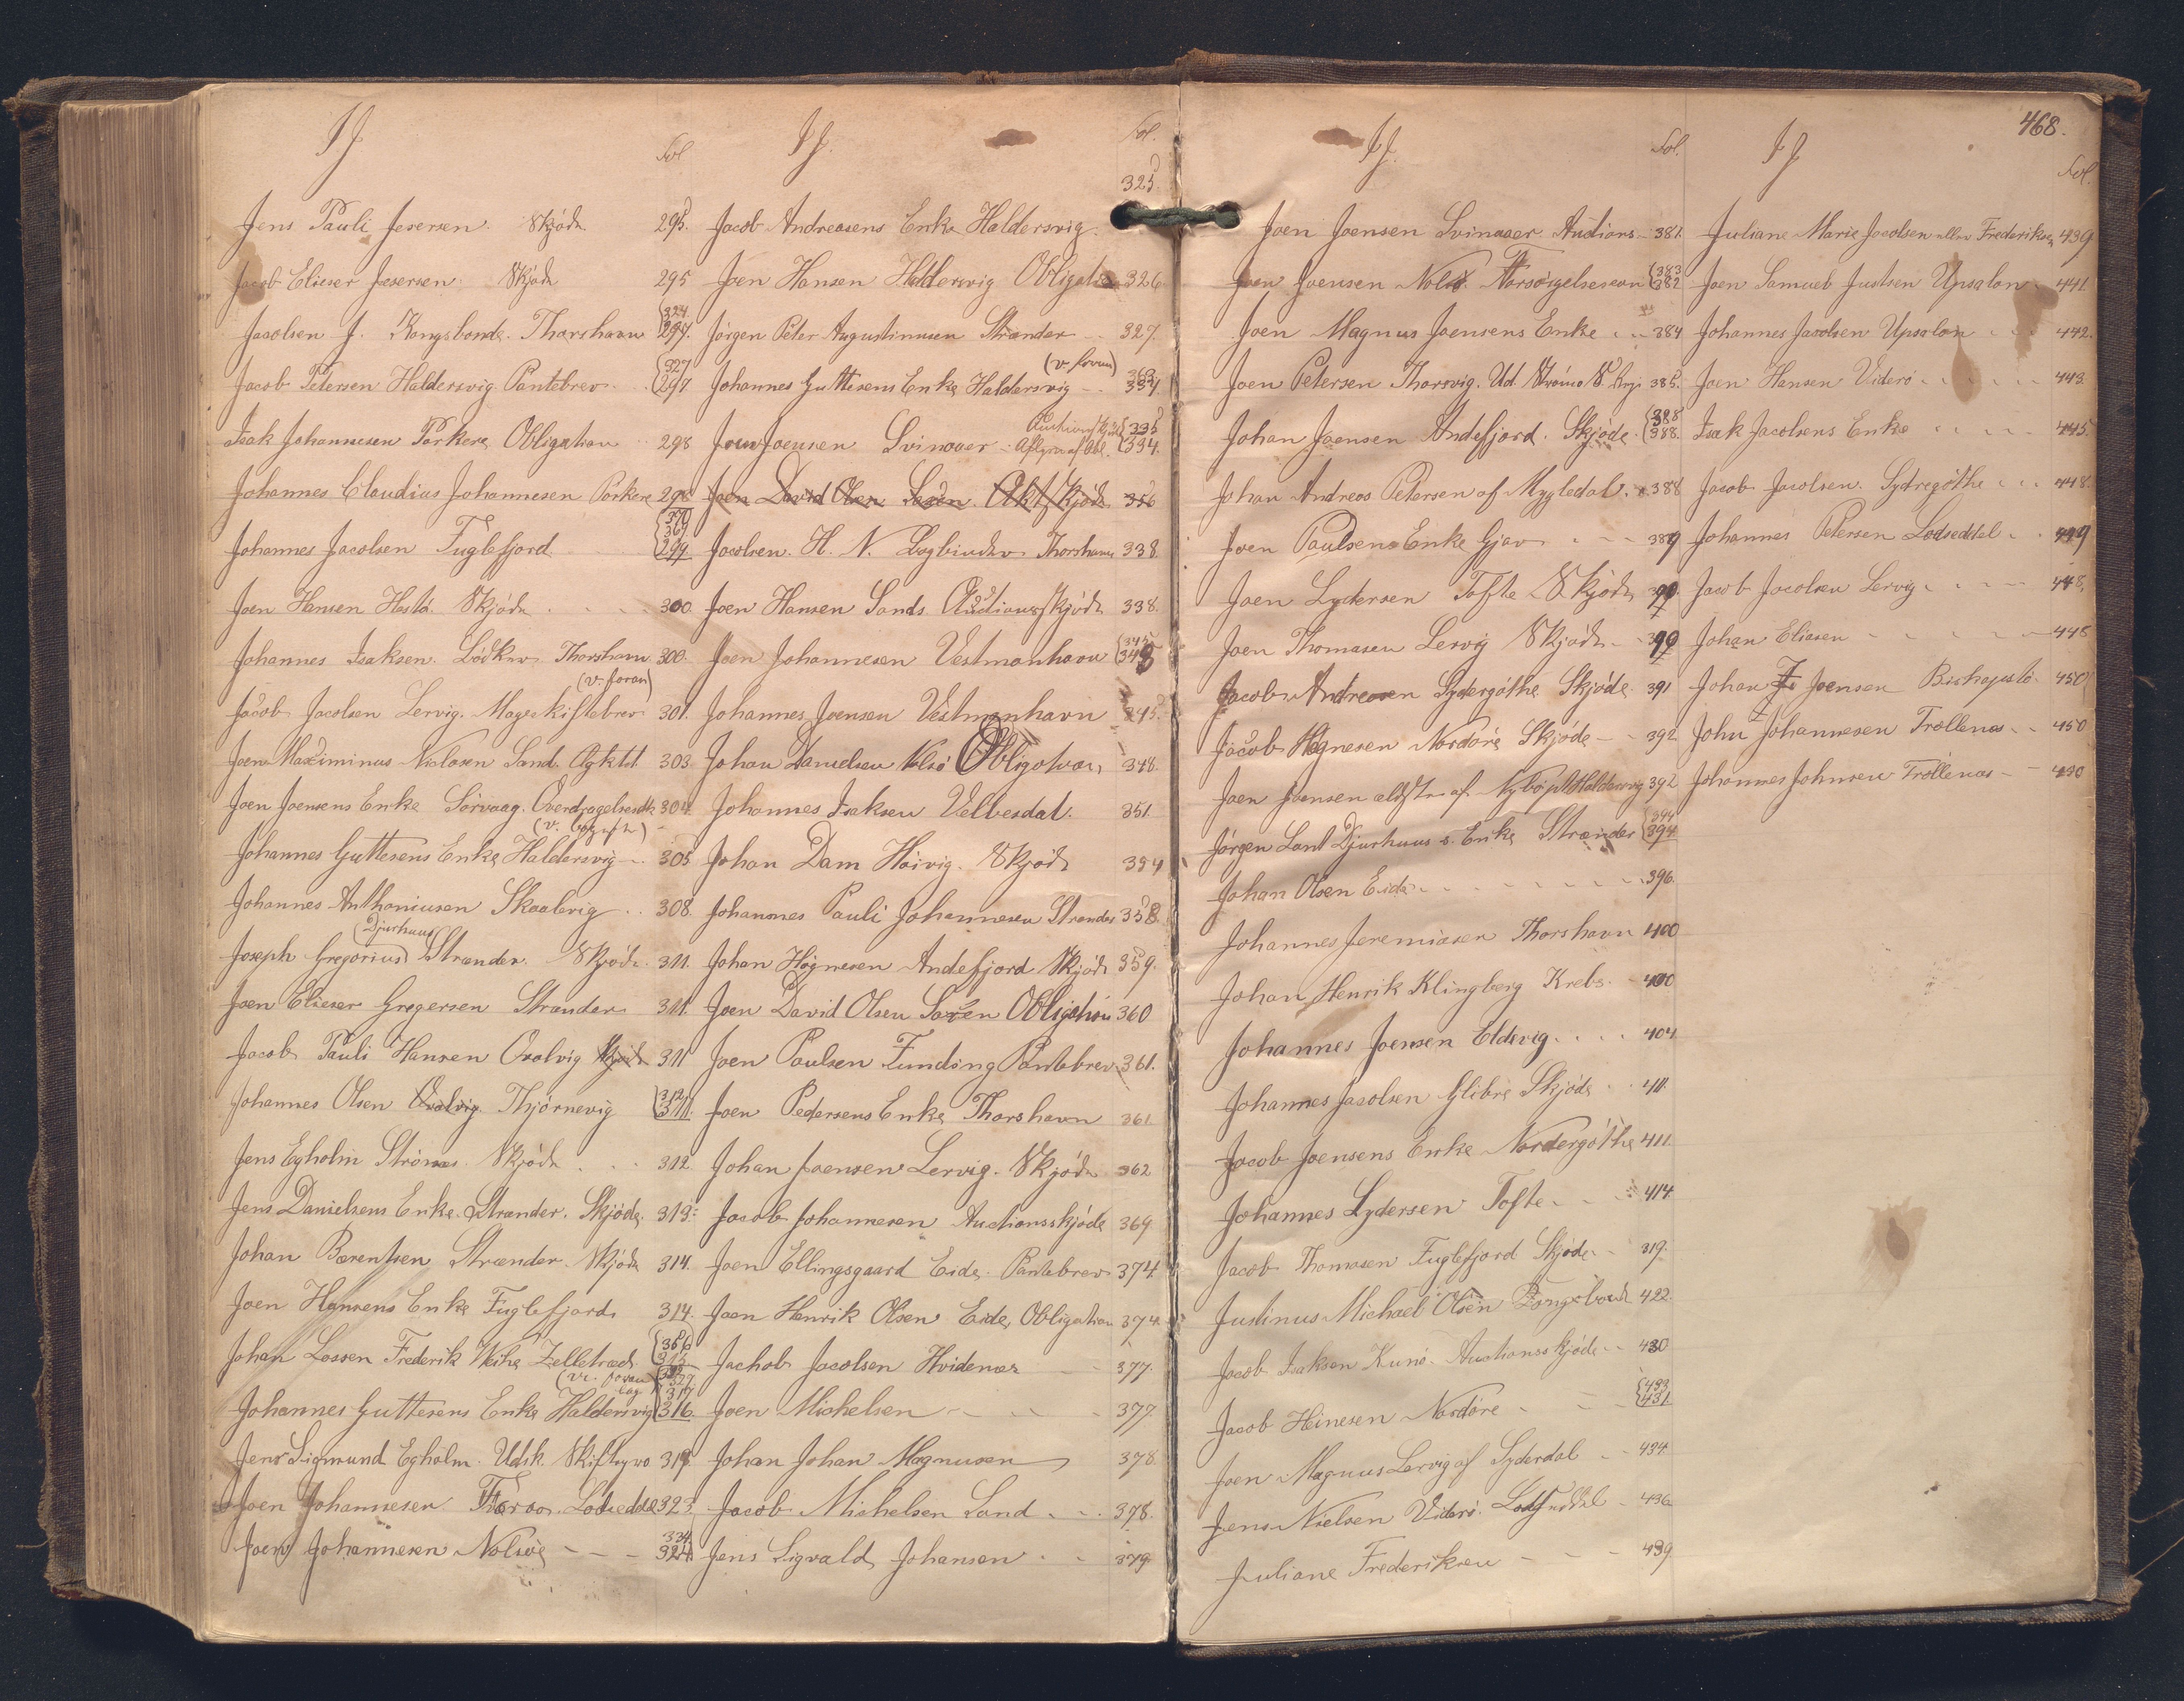 468.
IJ
Fol
Jens Pauli Jesersen. Skjøde 295.
Jacob Elieser Jesersen. Skjøde 295
Jacobsen J. Kongsbonde. Thorshavn {324. 297.
Jacob Petersen Haldersvig Pantebrev {327 297
Isak Johannesen Porkere Obligation 298
Johannes Claudius Johannesen Porkere 298
Johannes Jacobsen Fuglefjord {370 369 299
Joen Hansen Hestø. Skjøde 300.
Johannes Isaksen. Bødker Thorshavn 300.
(v. foran)
Jacob Jacobsen Lervig. Mageskiftebrev 301.
Joen Maximinus Niclasen Sand. 303.
Joen Joensens Enke Sørvaag. 304.
(v. bagefter)
Johannes Guttesens Enke Haldersvig 305
Johannes Anthoniusen Skaalevig 308.
(Djurhuus)
Joseph Gregorius Strænder. Skjøde. 311.
Joen Elieser Gregersen Strænder 311.
Jacob Pauli Hansen Qvalvig Skjøde 311
Johannes Olsen Qvalvig. Thjørnevig {312. 311.
Jens Egholm Strømnæs. Skjøde 312.
Jens Danielsens Enke. Strænder. Skjøde. 313.
Johan Berentsen Strænder. Skjøde 314.
Joen Hansens Enke Fuglefjord. 314.
Johan Lossen Frederik Weihe Zelletræd {386 315
(v. foran bag) 327.
Johannes Guttesens Enke Haldersvig {317 316.
Jens Sigmund Egholm. Udsk. 319.
Joen Johannesen Lodseddel 323.
Joen Johannesen Nolsø 324. 324.
IJ.
Fol.
325.
Jacob Andreasens Enke Haldersvig.
Joen Hansen Haldersvig Obligation 326
Jørgen Peter Augustinusen Strænder 327.
(v foran)
Johannes Guttesens Enke Haldersvig 363. 334
Joen Joensen Svinaaer {335 334.
Joen David Olsen Saxen. Skjøde 356
Jacobsen. H. N. Bogbinder Thorshavn 338.
Joen Hansen Sands Auctionsskjøde 338.
Joen Johannesen Vestmanhavn {345
Johannes Joensen Vestmanhavn 345.
Johan Danielsen Nolsø Obligation 348.
Johannes Isaksen Velbesdal. 351.
Johan Dam Høivig. Skjøde 354
Johannes Pauli Johannesen Strænder 358
Johan Høgnesen Andefjord Skjøde 359.
Joen David Olsen Saxen Obligation 360
Joen Poulsen Funding Pantebrev 361.
Joen Pedersens Enke Thorshavn 361.
Johan Joensen Lervig. Skjøde 362
Jacob Johannesen Auctionsskjøde 369
Joen Ellingsgaard Eide. Pantebrev 374
Joen Henrik Olsen Eide, Obligation 374
Jachob Jacobsen Hvidenæs 377.
Joen Michelsen 377.
Johan Johan Magnusen 378.
Jacob Michelsen Sand 378.
Jens Sigvald Johansen 379.
IJ.
Fol.
Joen Joensen Svinaaer Auctions 381.
Joen Joensen Nolsø. Forsørgelsesevn {383 382
Joen Magnus Joensens Enke 384
Joen Petersen Thorsvig. Ud. Strømø S. 385.
Johan Joensen Andefjord. Skjøde. {388 388.
Johan Andreas Petersen af Mygledal. 388
Joen Paulsens Enke Gjov 389
Joen Lydersen Tofte Skjøde 390.
Joen Thomasen Lervig Skjøde 390
Jacob Andreasen Sydergøthe Skjøde. 391
Jacob Høgnesen Nordøre Skjøde 392.
Joen Joensen ældste af Haldersvig 392
Jørgen Lant Djurhuus s. Enke Strænder {394 394
Johan Olsen Eide 396.
Johannes Jeremiasen Thorshavn 400
Johan Henrik Klingberg Krebs. 400
Johannes Joensen Eldevig 404
Johannes Jacobsen Glibre Skjøde 411.
Jacob Joensens Enke Nordergøthe 411.
Johannes Lydersen Tofte 414
Jacob Thomasen Fuglefjord Skjøde 319.
Justinus Michael Olsen Kongsbonde 422.
Jacob Isaksen Kunø. Auctionsskjøde 430.
Jacob Heinesen Nordøre {433 431.
Joen Magnus Lervig af Syderdal 434
Jens Nielsen Viderø. Lodseddel 436
Juliane Frederiksen 439
IJ
Fol.
Juliane Marie Jacobsen eller Frederiksen 439
Joen Samuel Justsen Upsalon 441
Johannes Jacobsen Upsalon 442.
Joen Hansen Viderø 443.
Isak Jacobsens Enke 445.
Jacob Jacobsen. Sydregøthe 448.
Johannes Petersen Lodseddel 449
Jacob Jacobsen Lervig 448.
Johan Eliasen 448
Johan J. Joensen Bischopstø 450
John Johannesen Trøllenæs 450
Johannes Johnsen Trøllenæs 450